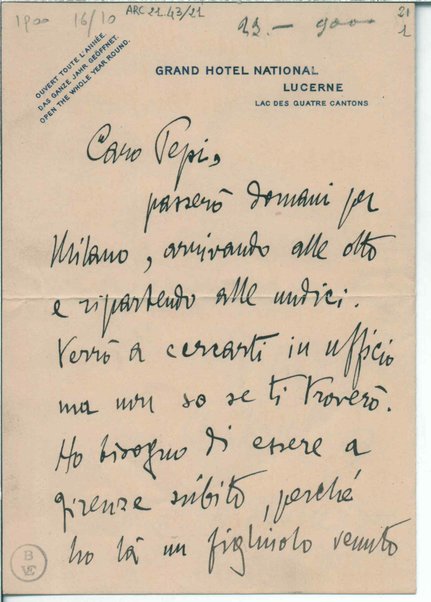 1900 16/10
ARC 21.43/21
23. — 900
21
1
OUVERT TOUTE L'ANNÉE.
DAS GANZE JAHR GEÖFFNET.
OPEN THE WHOLE YEAR ROUND.
GRAND HOTEL NATIONAL
LUCERNE
LAC DES QUATRE CANTONS
Caro Pepi,
passerò domani per
Milano, arrivando alle otto
e ripartendo alle undici.
Verrò a cercarti in ufficio
ma non so se ti troverò.
Ho bisogno di essere a
Firenze subito, perché
ho là un figliuolo venuto
B
VE